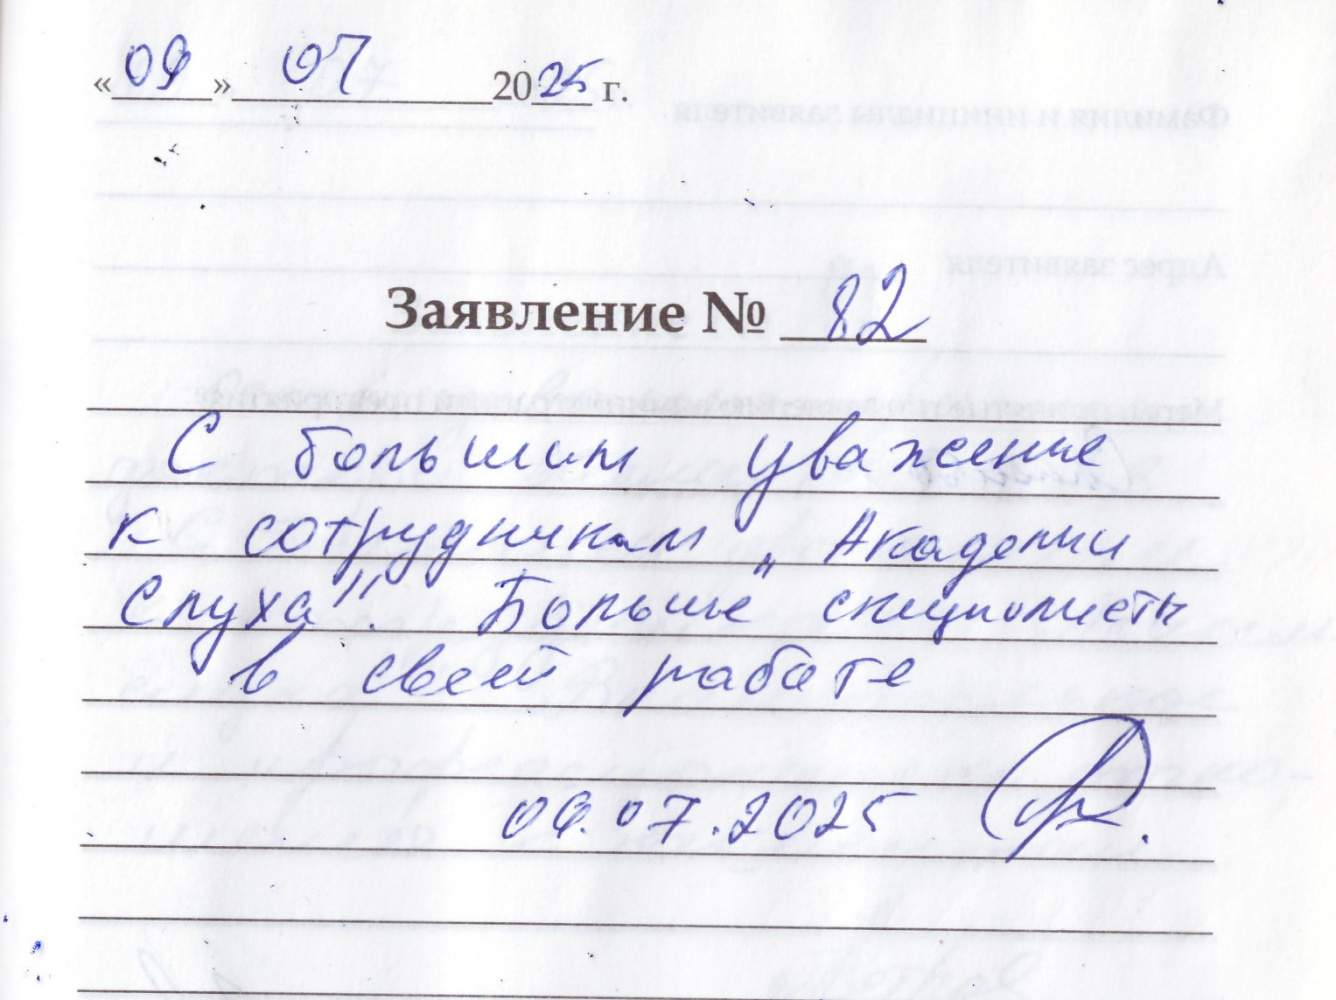 «09» 07 2025 г.
Заявление № 82
С большим уважение
к сотрудникам „Академии
Слуха". Больше специолисты
в своей работе
09.07.2025